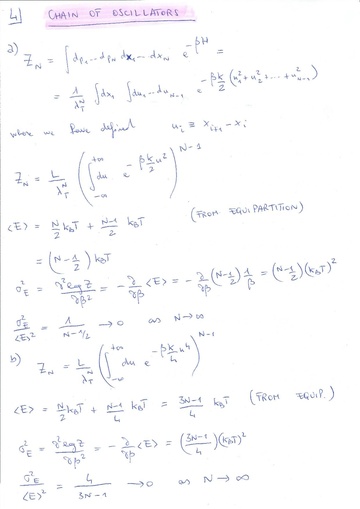 4) CHAIN OF OSCILLATORS
a) Z_N = ∫ dp_1 ... dp_N dx_1 ... dx_N e^{-βH} =
= 1/λ_T^N ∫ dx_1 ∫ du_1 ... du_{N-1} e^{-βk/2 (u_1^2 + u_2^2 + ... + u_{N-1}^2)}
where we have defined u_i ≡ x_{i+1} - x_i
Z_N = L/λ_T^N ( ∫_{-∞}^{+∞} du e^{-βk/2 u^2} )^{N-1}
<E> = N/2 k_BT + N-1/2 k_BT (FROM EQUIPARTITION)
= (N - 1/2) k_BT
σ_E^2 = ∂^2 log Z/∂β^2 = - ∂/∂β <E> = - ∂/∂β (N-1/2) 1/β = (N-1/2)(k_BT)^2
σ_E^2/<E>^2 = 1/N-1/2 → 0 as N → ∞
b) Z_N = L/λ_T^N ( ∫_{-∞}^{+∞} du e^{-βk/4 u^4} )^{N-1}
<E> = N/2 k_BT + N-1/4 k_BT = 3N-1/4 k_BT (FROM EQUIP.)
σ_E^2 = ∂^2 log Z/∂β^2 = - ∂/∂β <E> = (3N-1/4)(k_BT)^2
σ_E^2/<E>^2 = 4/3N-1 → 0 as N → ∞